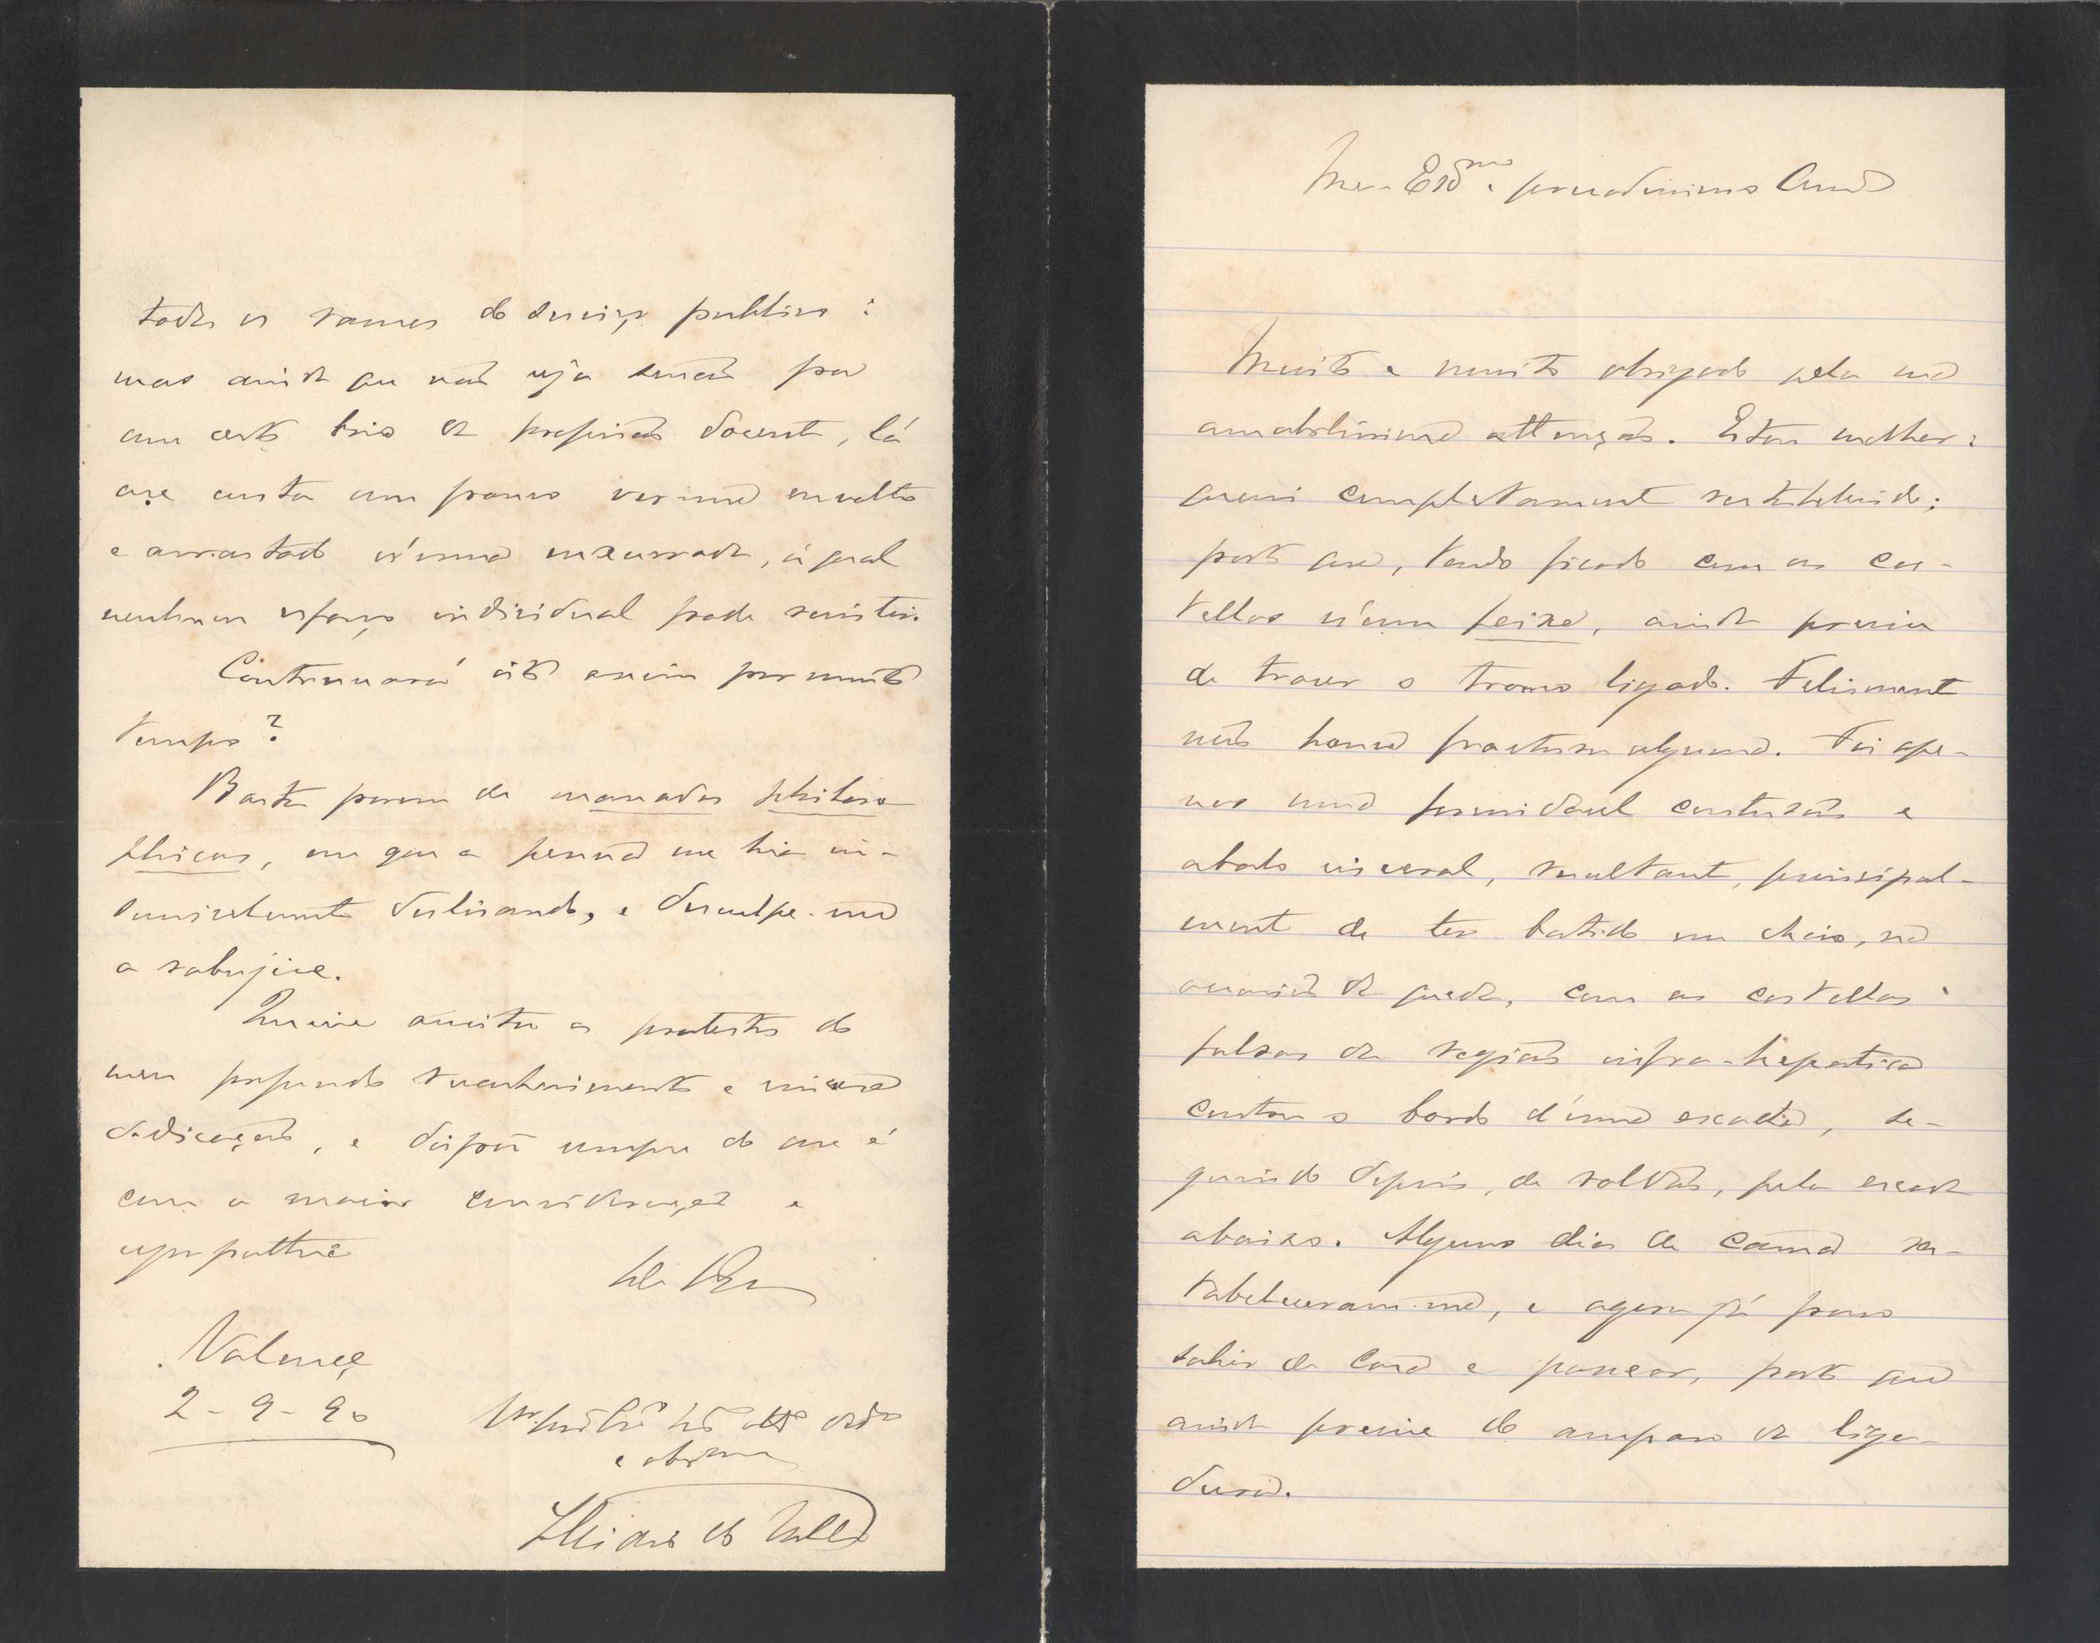 Meu Exmo e presadissimo Amo
Muito e muito obrigado pela sua
amabilissima attenção. Estou melhor:
quasi completamente restabelecido;
posto que, tendo ficado com as cos-
tellas n'um feixe, ainda preciso
de trazer o tronco ligado. Felizmente
não houve fractura alguma. Foi ape-
nas uma formidavel contusão e
abalo visceral, resultante, principal-
mente de ter batido em cheio, na
occasião da queda, com as costellas
falsas da região infra-hepatica
contra o bordo d'uma escada, se-
guindo depois, de roldão, pela escada
abaixo. Alguns dias de cama res-
tabeleceram-me, e agora já posso
sahir de casa e passear, posto que
ainda precise do amparo da liga-
dura.
todos os ramos do serviço publico:
mas ainda que não seja senão por
um certo brio da profissão docente, lá
que custa um pouco ver-me envolto
e arrastado n'uma enxurrada, á qual
nenhum esforço individual pode resistir.
Continuará isto assim por muito
tempo?
Basta porem de massadas philoso-
phicas, em que a penna me hia in-
sensivelmente deslisando, e desculpe-me
a rabujice.
Queira aceitar os protestos do
meu profundo reconhecimento e sincera
dedicação, e dispôr sempre do que é
com a maior consideração e
sympathia
De V. Exa
Valença
2-9-90
atto
e obrgmo